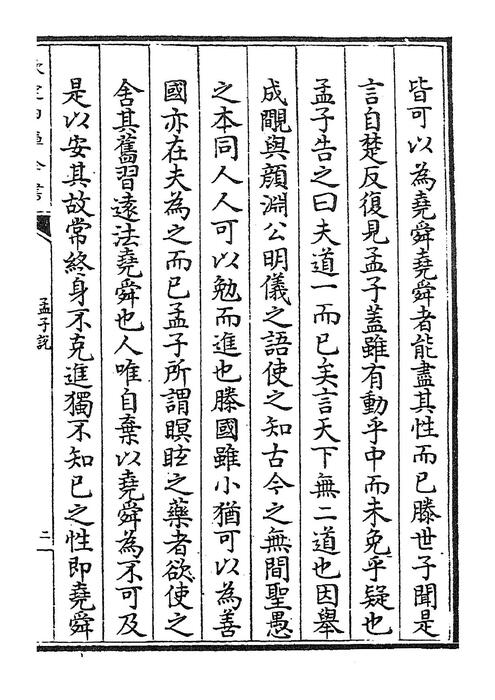 皆可以為堯舜堯舜者能盡其性而已滕世子聞是
言自楚反復見孟子蓋雖有動乎中而未免乎疑也
孟子告之曰夫道一而已矣言天下無二道也因舉
成覸與顔淵公明儀之語使之知古今之無間聖愚
之本同人人可以勉而進也滕國雖小猶可以為善
國亦在夫為之而已孟子所謂瞑眩之藥者欲使之
舍其舊習逺法堯舜也人唯自棄以堯舜為不可及
是以安其故常終身不克進獨不知已之性即堯舜
欽定四庫全書
孟子説
二